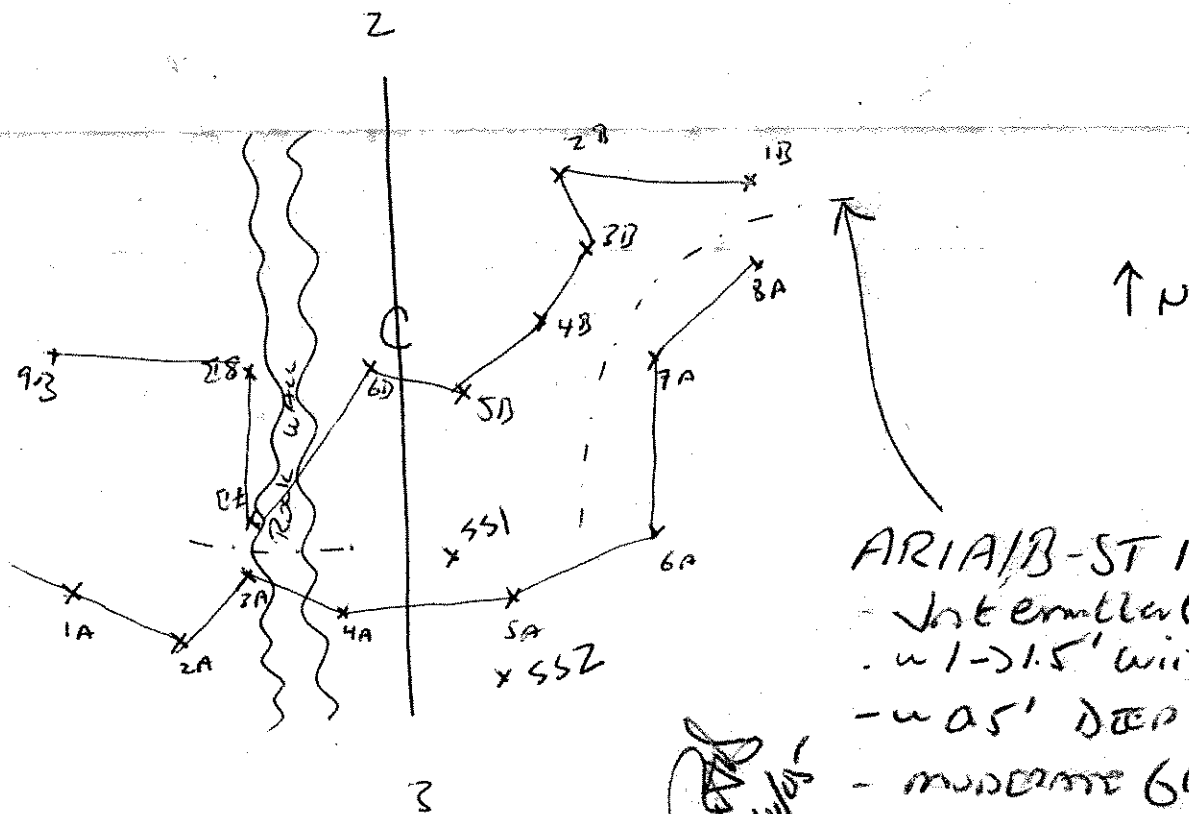 2
2B
1B
3B
8A
↑ N
4B
C
7A
9B
8B
6B
5B
Rock Wall
SS1
6A
3A
1A
4A
5A
2A
SS2
ARIA/B-ST 1
- Intermittent
- ~ 1->1.5' wi
- ~ 0.5' DEEP
- MODERATE G
3